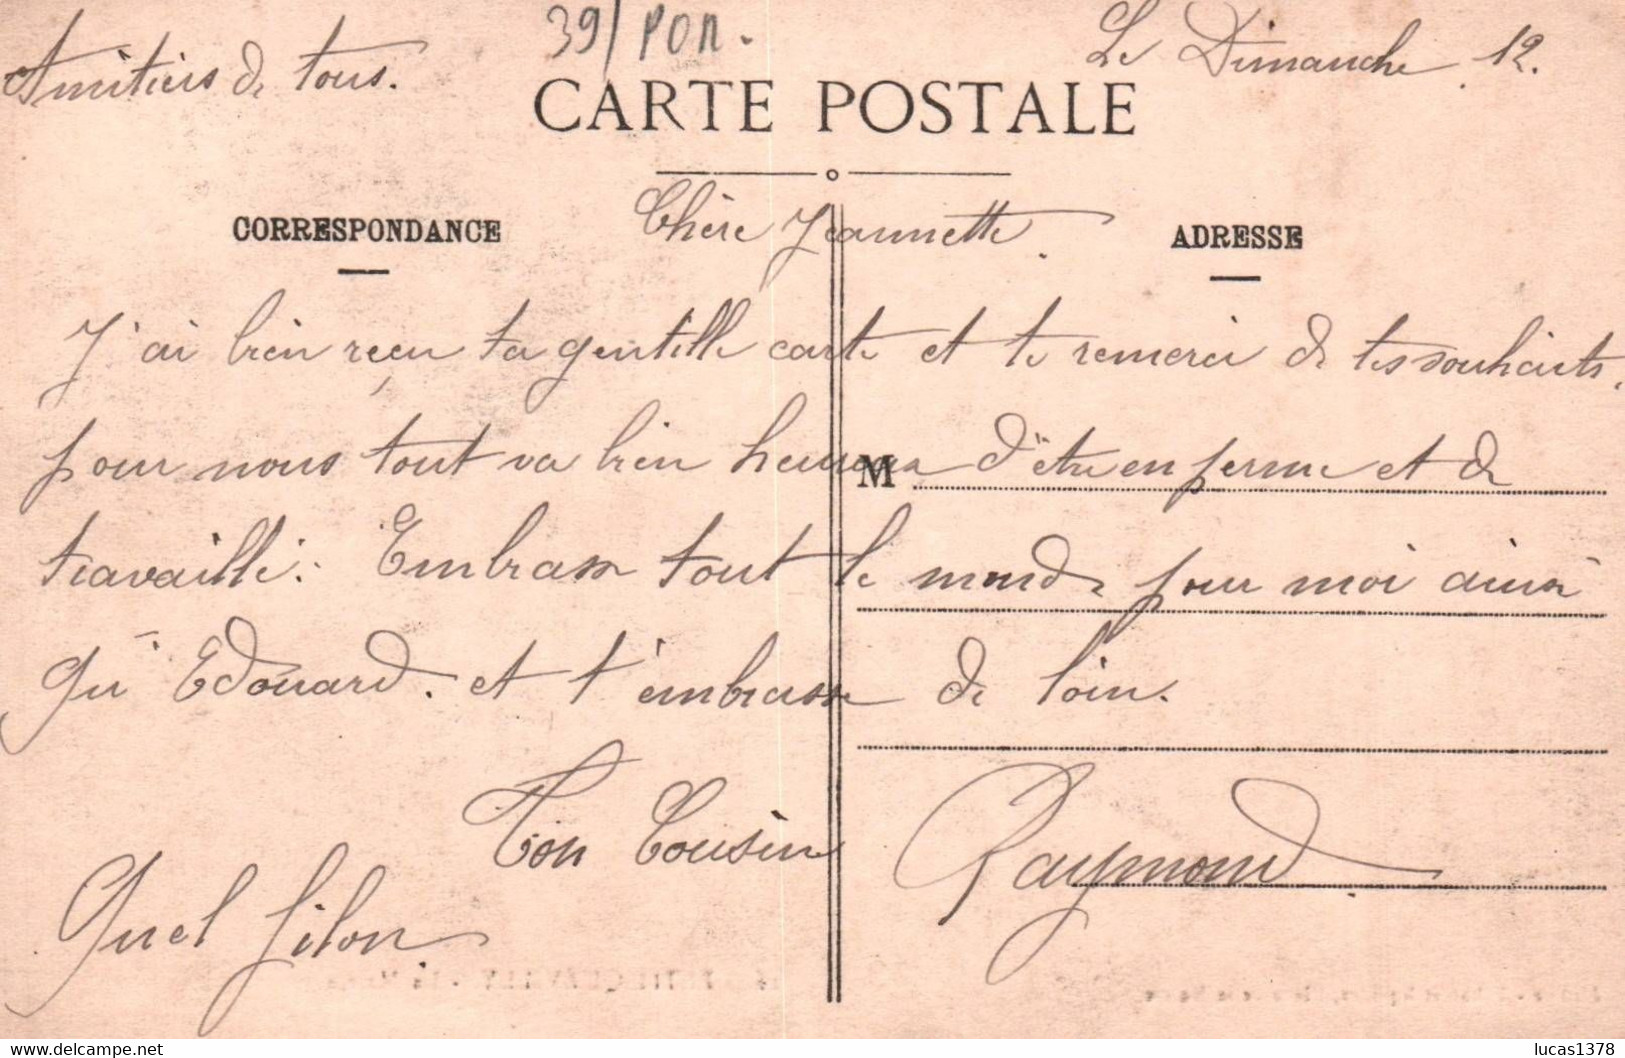 39/PON.
Amitiers de tous.
Le Dimanche 12.
CARTE POSTALE
CORRESPONDANCE
ADRESSE
Chère Jeannette.
J'ai bien reçu ta gentille carte et te remerci de tes souhaits,
pour nous tout va bien heureux d'être en perme et de
M
travaillé. Embrasse tout le monde pour moi ainsi
qu'Edouard. et t'embrasse de loin.
Ton Cousin Raymond
Quel filon.
www.delcampe.net
lucas1378